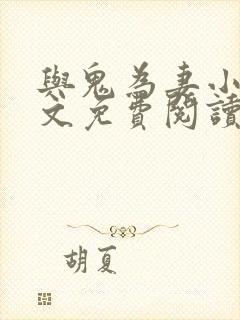 與鬼為妻小
文免費閱讀
胡夏